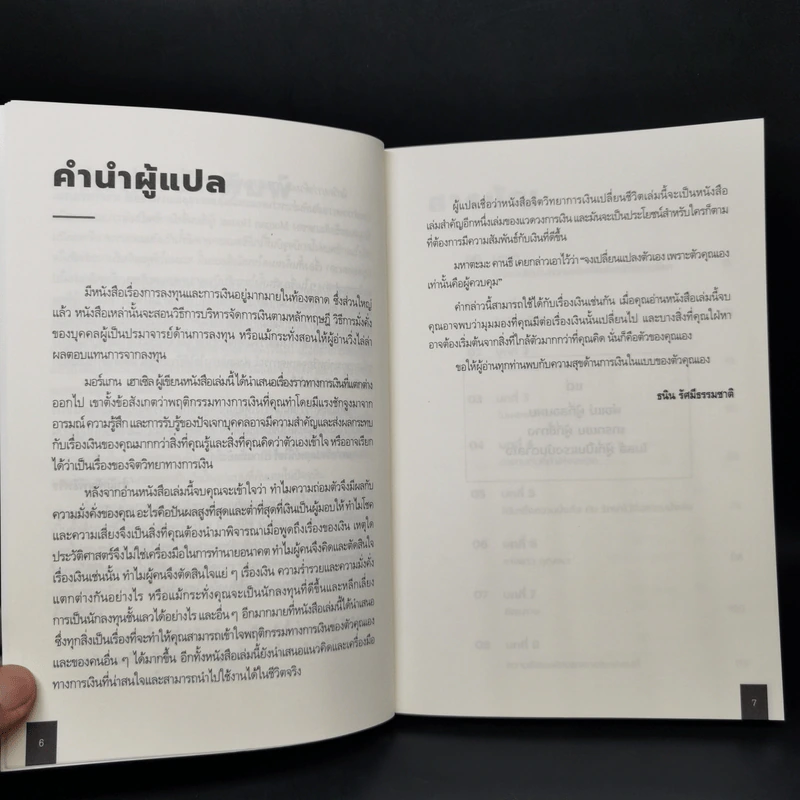 คำนำผู้แปล
มีหนังสือเรื่องการลงทุนและการเงินอยู่มากมายในท้องตลาด ซึ่งส่วนใหญ่
แล้ว หนังสือเหล่านั้นจะสอนวิธีการบริหารจัดการเงินตามหลักทฤษฎี วิธีการมั่งคั่ง
ของบุคคลผู้เป็นปรมาจารย์ด้านการลงทุน หรือแม้กระทั่งสอนให้ผู้อ่านวิ่งไล่ล่า
ผลตอบแทนการจากลงทุน
มอร์แกน เฮาเซิล ผู้เขียนหนังสือเล่มนี้ ได้นำเสนอเรื่องราวทางการเงินที่แตกต่าง
ออกไป เขาตั้งข้อสังเกตว่าพฤติกรรมทางการเงินที่คุณทำโดยมีแรงชักจูงมาจาก
อารมณ์ ความรู้สึก และการรับรู้ของปัจเจกบุคคลอาจมีความสำคัญและส่งผลกระทบ
กับเรื่องเงินของคุณมากกว่าสิ่งที่คุณรู้และสิ่งที่คุณคิดว่าตัวเองเข้าใจ หรืออาจเรียก
ได้ว่าเป็นเรื่องของจิตวิทยาทางการเงิน
หลังจากอ่านหนังสือเล่มนี้จบคุณจะเข้าใจว่า ทำไมความถ่อมตัวจึงมีผลกับ
ความมั่งคั่งของคุณ อะไรคือปันผลสูงที่สุดและต่ำที่สุดที่เงินเป็นผู้มอบให้ ทำไมโชค
และความเสี่ยงจึงเป็นสิ่งที่คุณต้องนำมาพิจารณาเมื่อพูดถึงเรื่องของเงิน เหตุใด
ประวัติศาสตร์จึงไม่ใช่เครื่องมือในการทำนายอนาคต ทำไมผู้คนจึงคิดและตัดสินใจ
เรื่องเงินเช่นนั้น ทำไมผู้คนจึงตัดสินใจแย่ ๆ เรื่องเงิน ความร่ำรวยและความมั่งคั่ง
แตกต่างกันอย่างไร หรือแม้กระทั่งคุณจะเป็นนักลงทุนที่ดีขึ้นและหลีกเลี่ยง
การเป็นนักลงทุนชั้นเลวได้อย่างไร และอื่น ๆ อีกมากมายที่หนังสือเล่มนี้ได้นำเสนอ
ซึ่งทุกสิ่งเป็นเรื่องที่จะทำให้คุณสามารถเข้าใจพฤติกรรมทางการเงินของตัวคุณเอง
และของคนอื่น ๆ ได้มากขึ้น อีกทั้งหนังสือเล่มนี้ยังนำเสนอแนวคิดและเครื่องมือ
ทางการเงินที่น่าสนใจและสามารถนำไปใช้งานได้ในชีวิตจริง
6
ผู้แปลเชื่อว่าหนังสือจิตวิทยาการเงินเปลี่ยนชีวิตเล่มนี้จะเป็นหนังสือ
เล่มสำคัญอีกหนึ่งเล่มของแวดวงการเงิน และมันจะเป็นประโยชน์สำหรับใครก็ตาม
ที่ต้องการมีความสัมพันธ์กับเงินที่ดีขึ้น
มหาตะมะ คานธี เคยกล่าวเอาไว้ว่า “จงเปลี่ยนแปลงตัวเอง เพราะตัวคุณเอง
เท่านั้นคือผู้ควบคุม”
คำกล่าวนี้สามารถใช้ได้กับเรื่องเงินเช่นกัน เมื่อคุณอ่านหนังสือเล่มนี้จบ
คุณอาจพบว่ามุมมองที่คุณมีต่อเรื่องเงินนั้นเปลี่ยนไป และบางสิ่งที่คุณใฝ่หา
อาจต้องเริ่มต้นจากสิ่งที่ใกล้ตัวมากกว่าที่คุณคิด นั่นก็คือตัวของคุณเอง
ขอให้ผู้อ่านทุกท่านพบกับความสุขด้านการเงินในแบบของตัวคุณเอง
ธนิน รัศมีธรรมชาติ
7